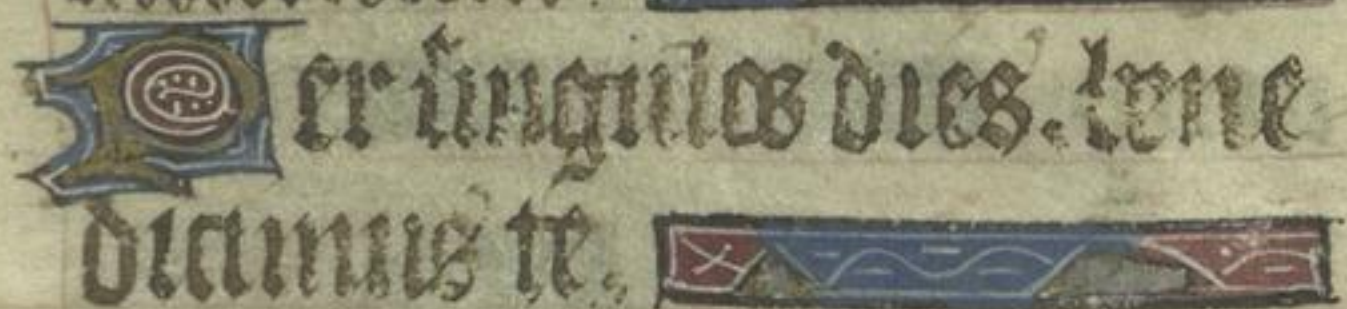 Per singulos dies. bene
dicimus te.